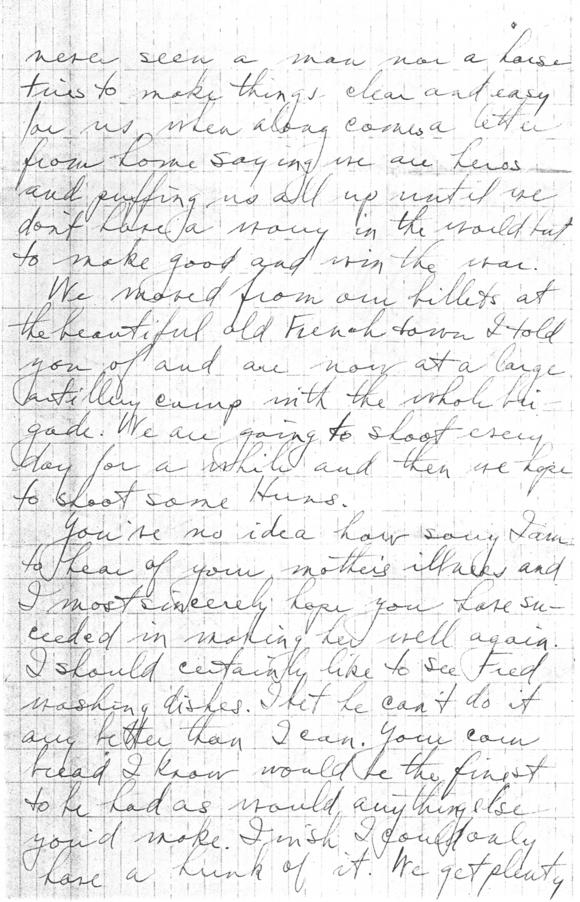 never seen a man nor a horse
tries to make things clear and easy
for us, when along comes a letter
from home saying we are heros
and puffing us all up until we
don't have a worry in the world but
to make good and win the war.
We moved from our billets at
the beautiful old French town I told
you of and are now at a large
artillery camp with the whole bri-
gade. We are going to shoot every
day for a while and then we hope
to shoot some Huns.
You've no idea how sorry I am
to hear of your mother's illness and
I most sincerely hope you have suc-
ceeded in making her well again.
I should certainly like to see Fred
washing dishes. I bet he can't do it
any better than I can. Your corn
bread I know would be the finest
to be had as would anything else
you'd make. I wish I could only
have a hunk of it. We get plenty